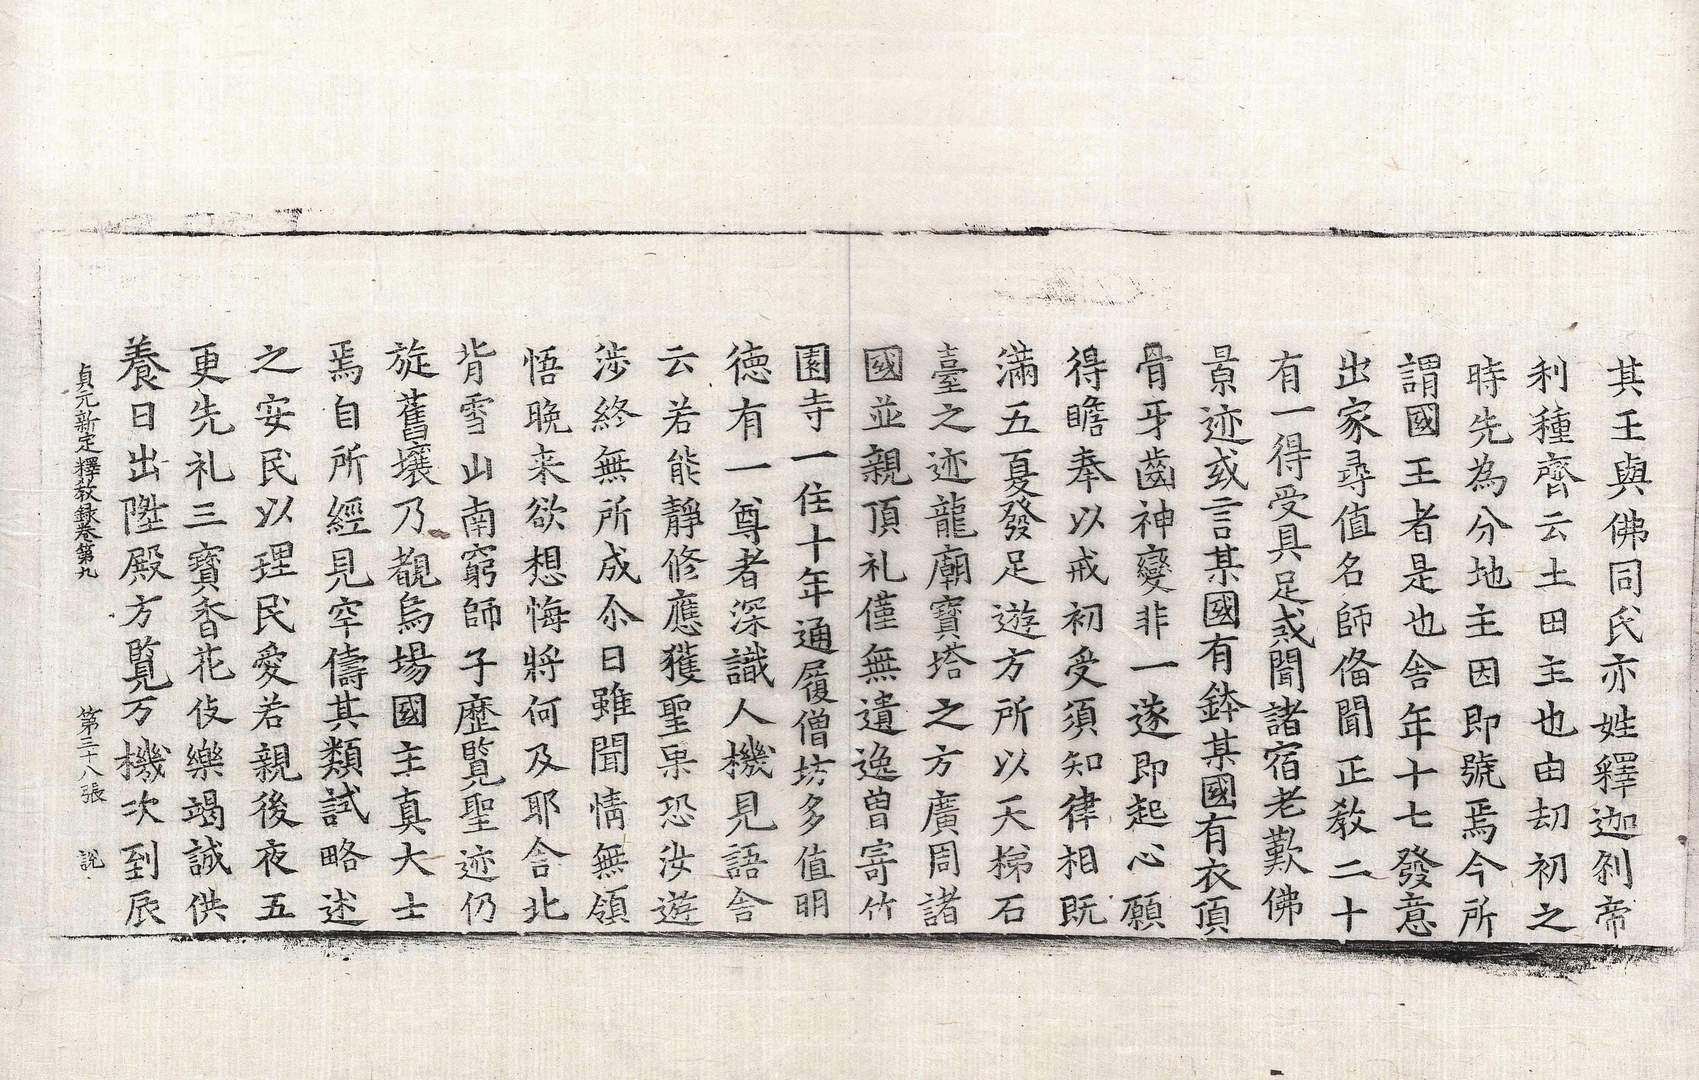 其王與佛同氏亦姓釋迦刹帝
利種齊云土田主也由刧初之
時先為分地主因即號焉今所
謂國王者是也舍年十七發意
出家尋值名師俻聞正敎二十
有一得受具足或聞諸宿老歎佛
景迹或言某國有鉢某國有衣頂
骨牙齒神變非一遂即起心願
得瞻奉以戒初受須知律相既
滿五夏發足遊方所以天梯石
臺之迹龍廟寶塔之方廣周諸
國並親頂礼僅無遺逸曾寄竹
園寺一住十年通履僧坊多值明
德有一尊者深識人機見語舍
云若能靜修應獲聖果恐汝遊
涉終無所成尒日雖聞情無領
悟晚来欲想悔將何及耶舍北
背雪山南窮師子歷覽聖迹仍
旋舊壤乃覩烏場國主真大士
焉自所經見罕儔其類試略述
之安民以理民愛若親後夜五
更先礼三寶香花伎樂竭誠供
養日出陞殿方覽万機次到辰
貞元新定釋敎録卷第九 第三十八張 說